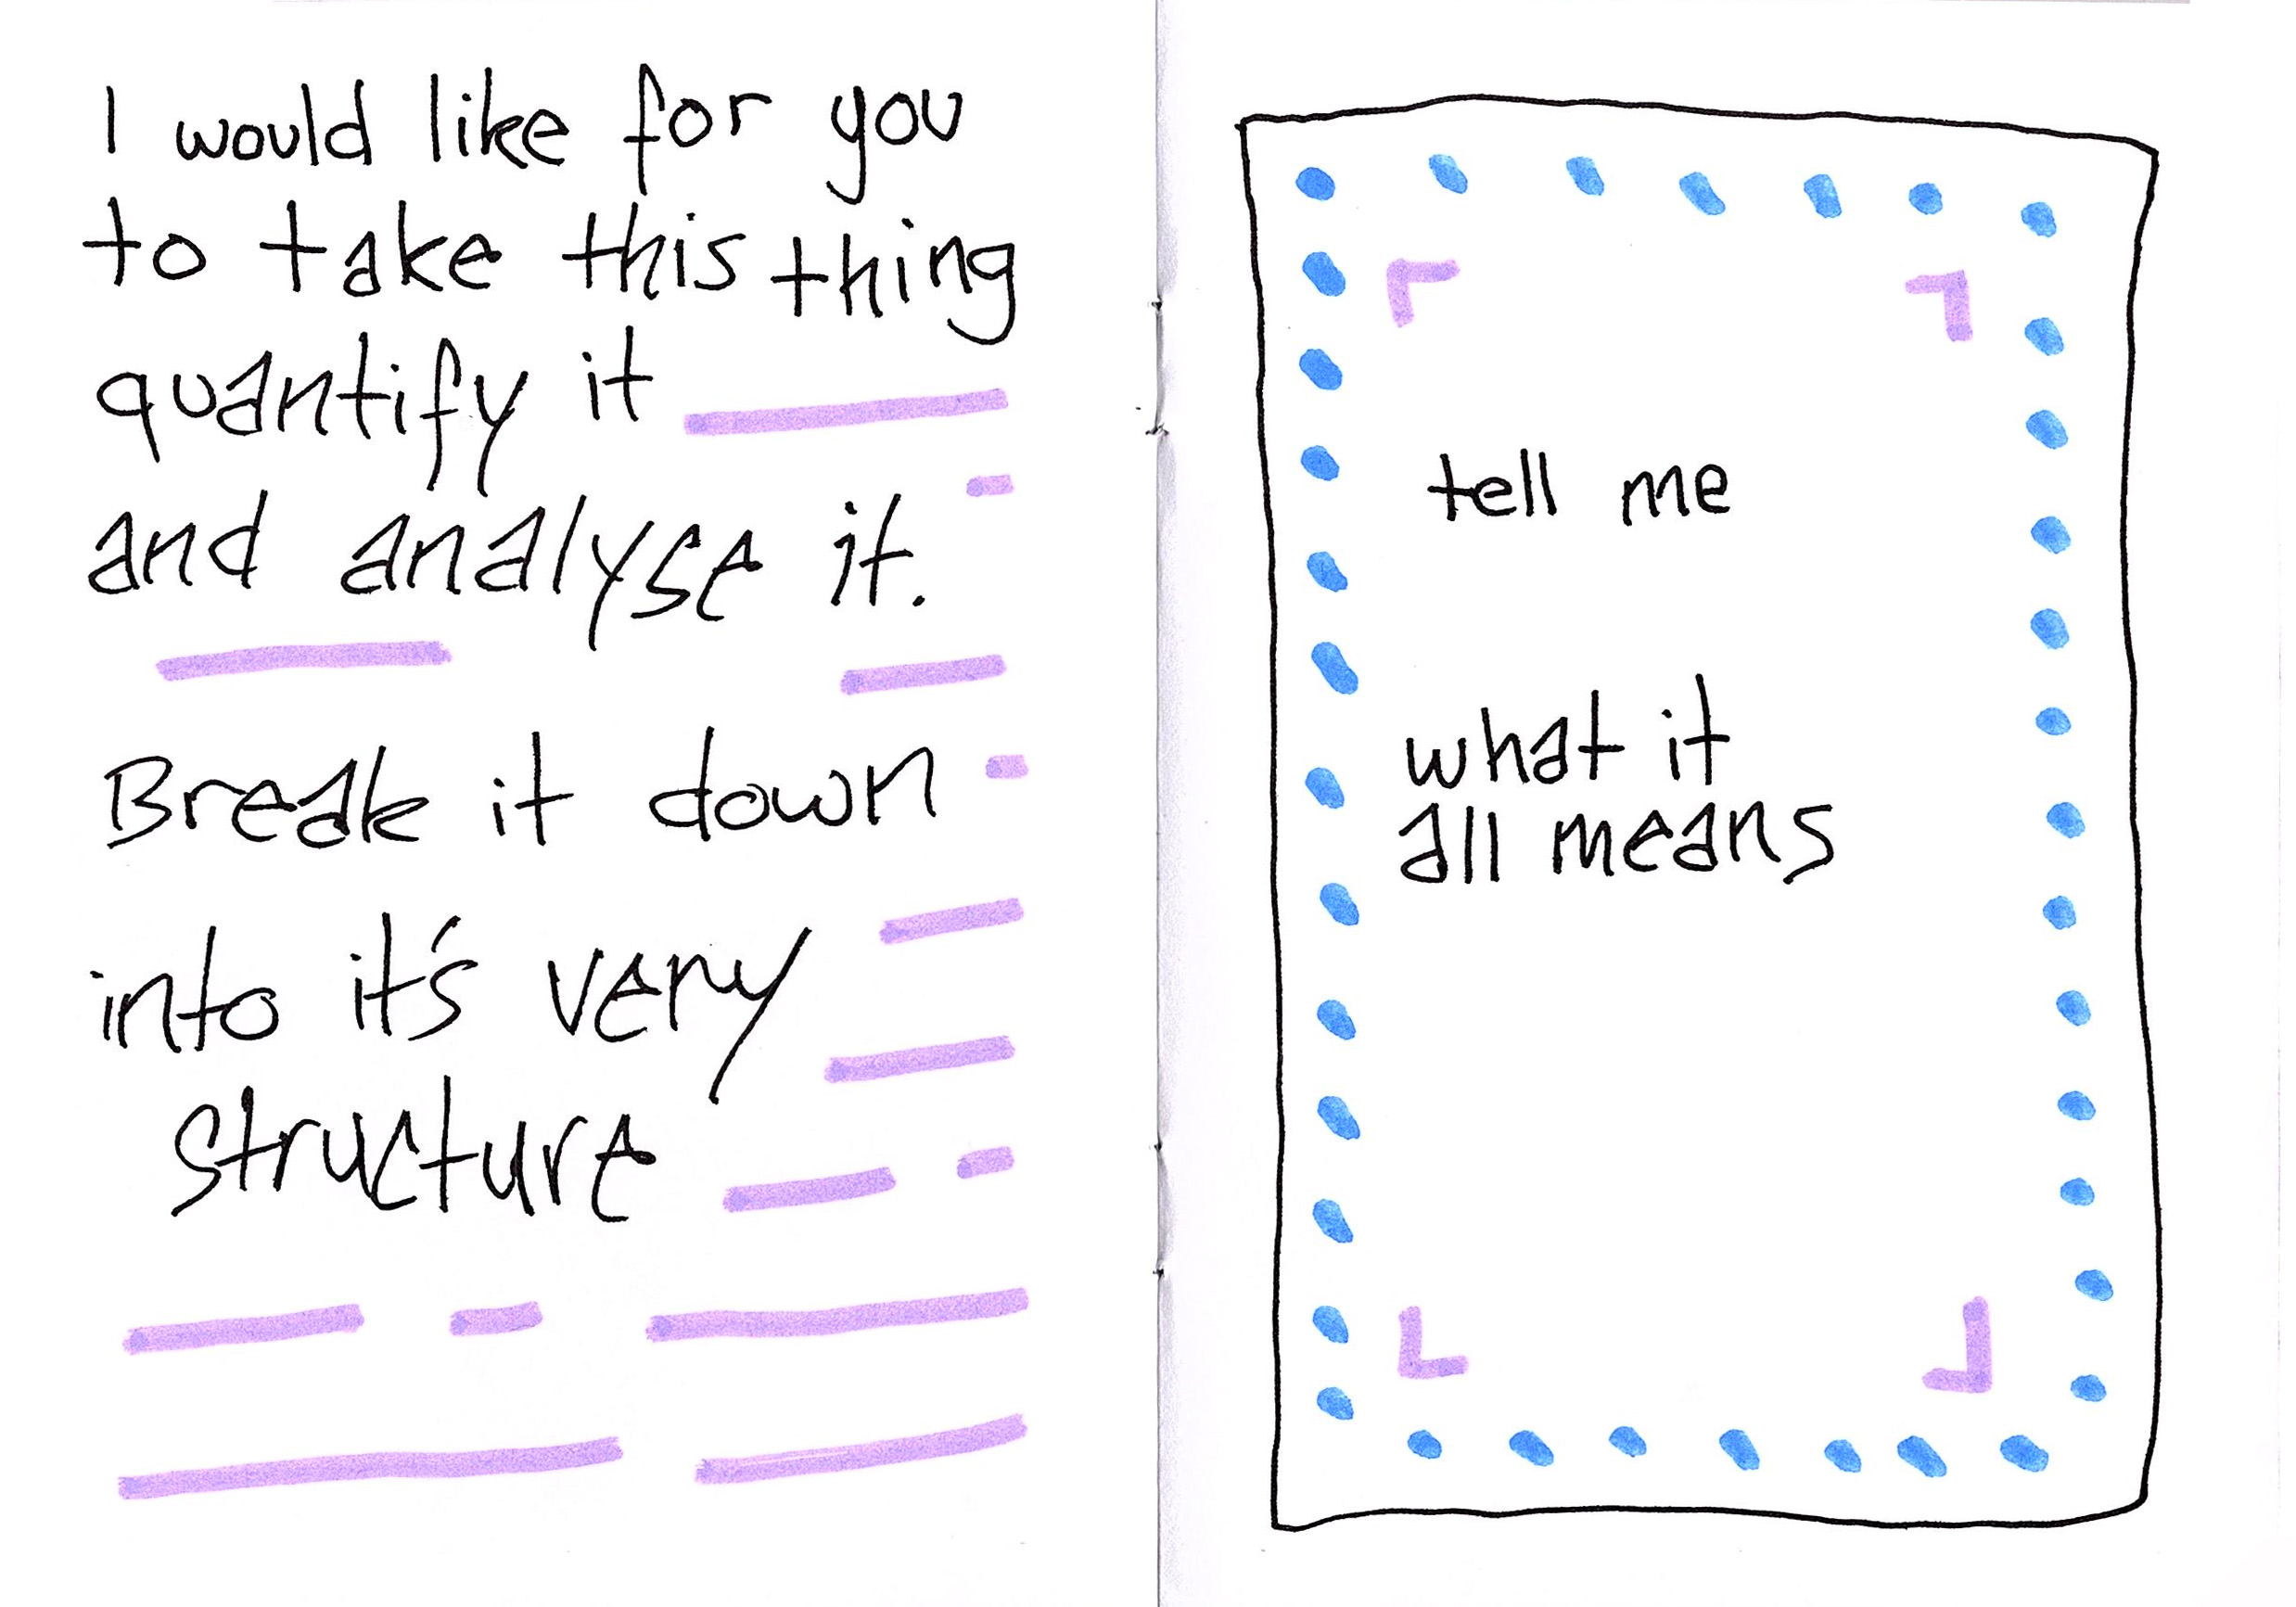 I would like for you
to take this thing
quantify it
and analyse it.
Break it down
into it's very
structure
tell me
what it
all means